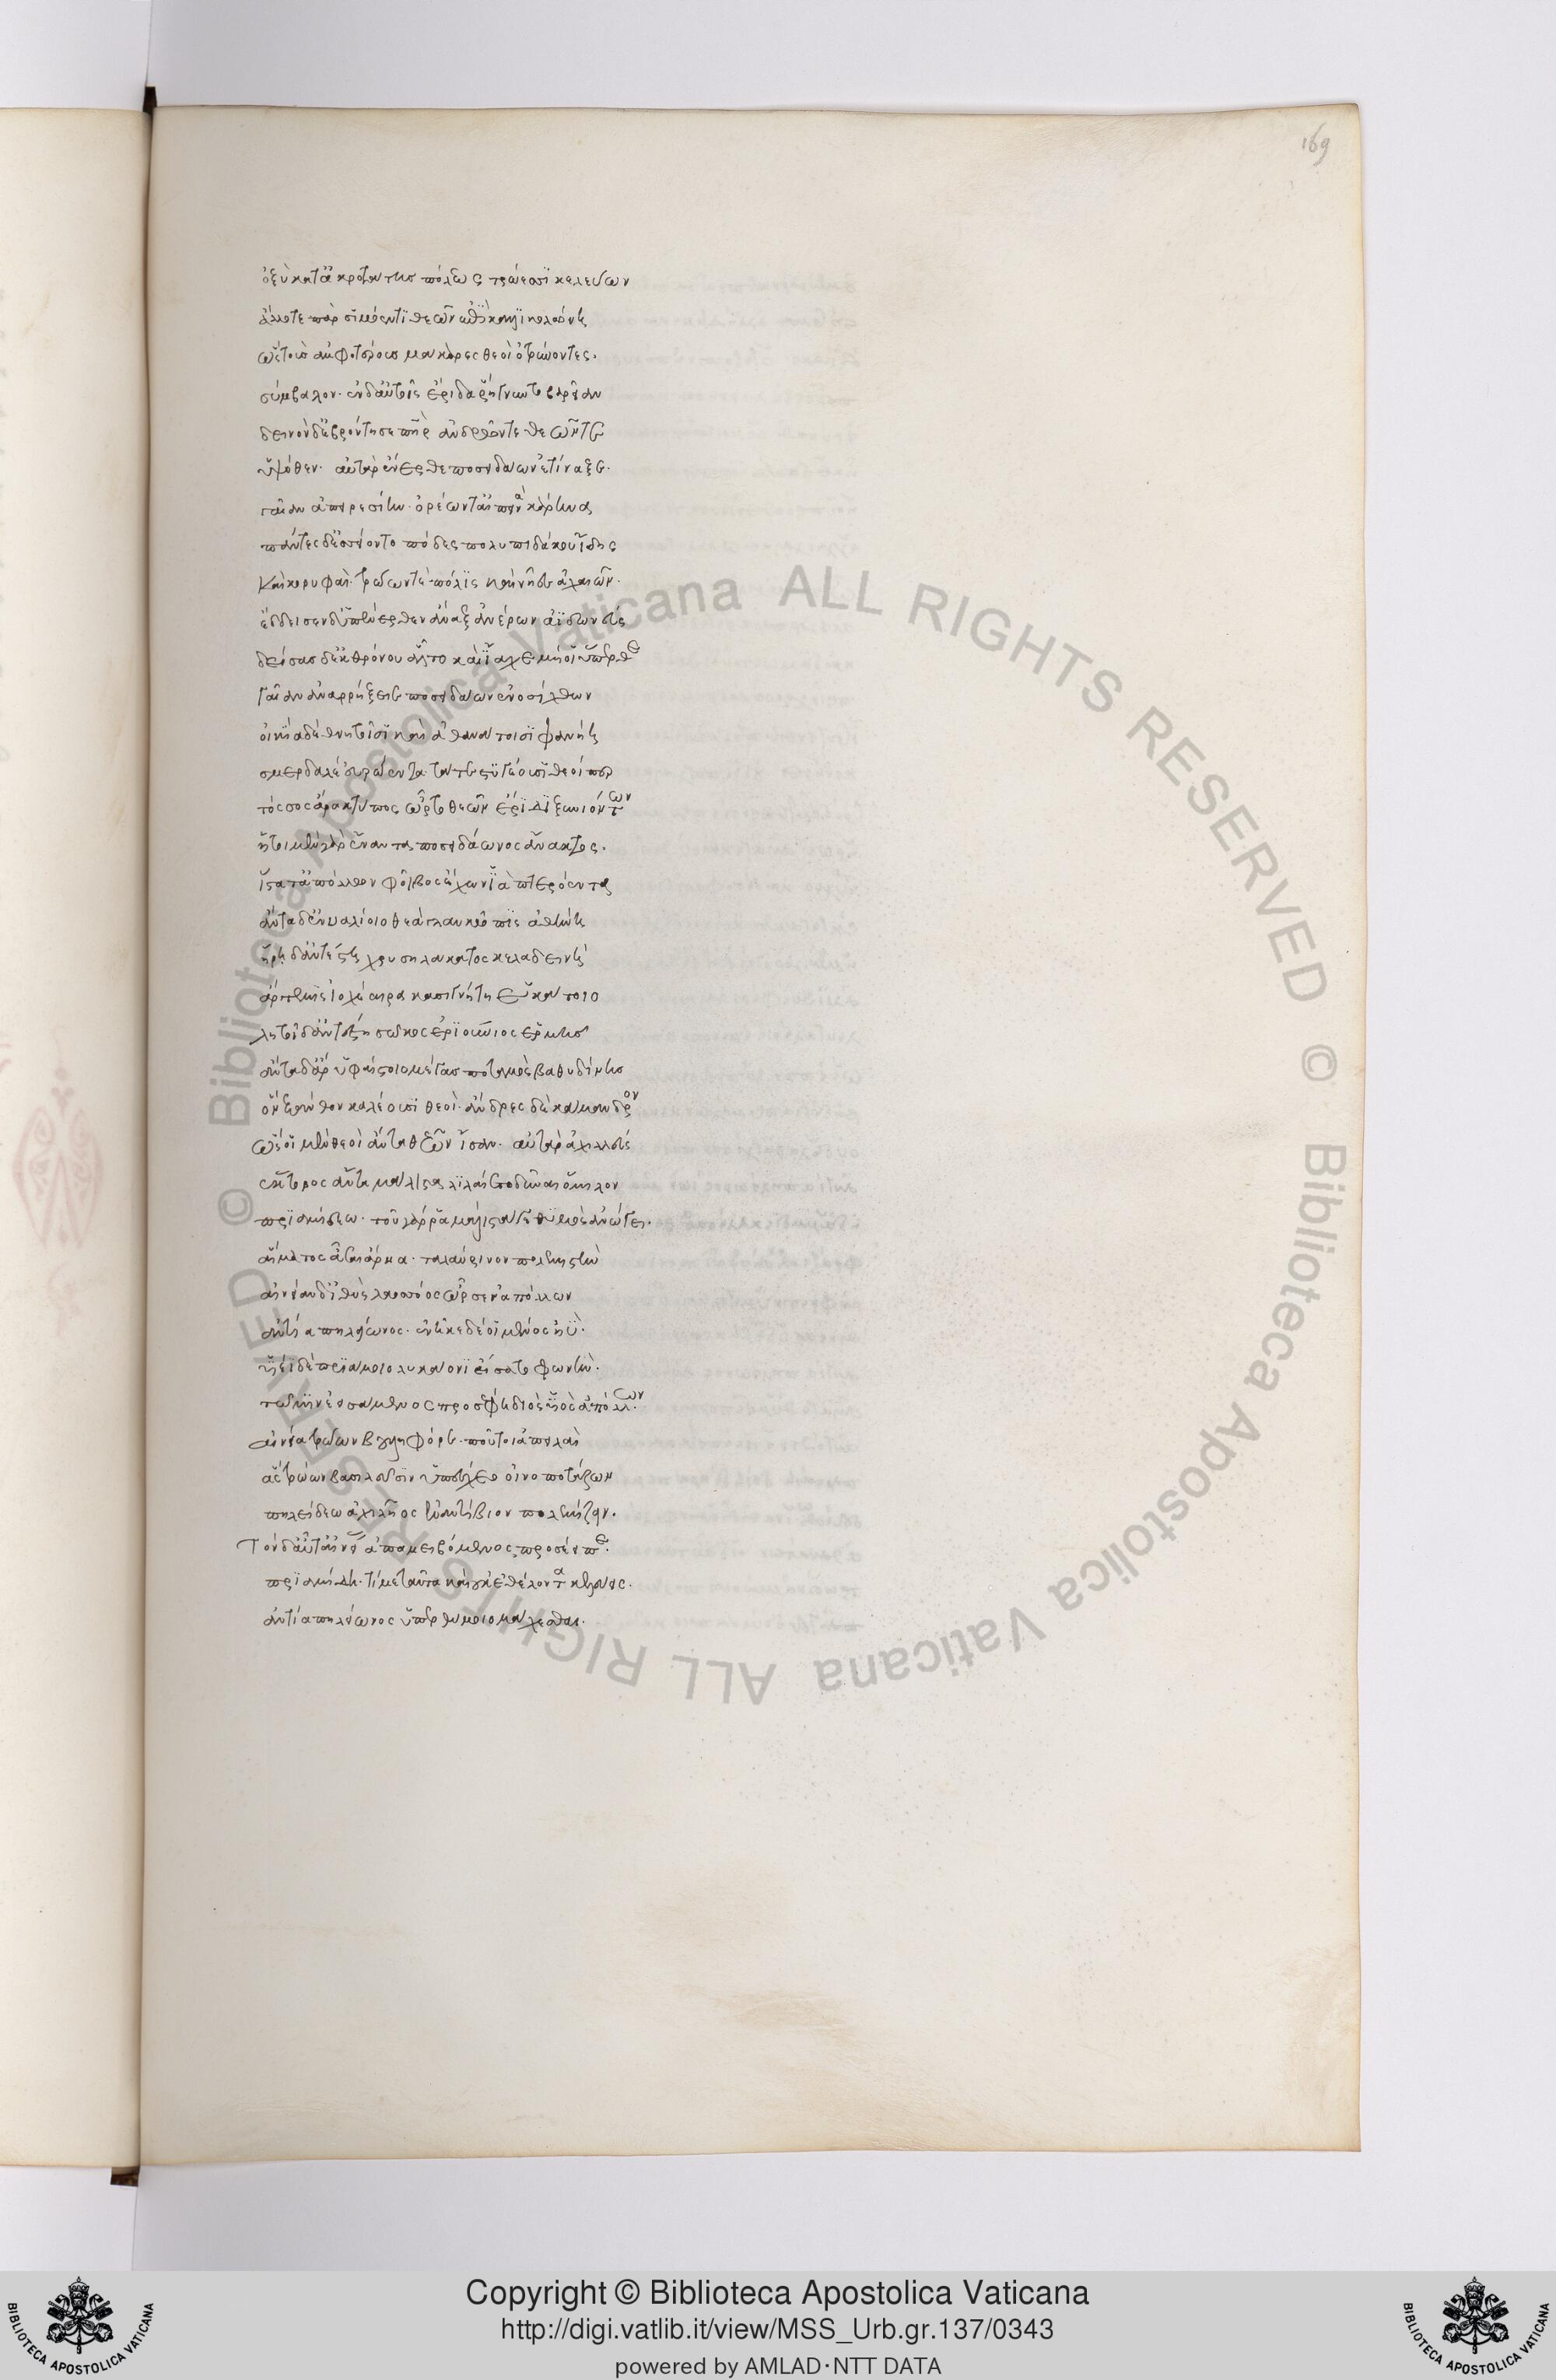 169
ὀξὺ κατ' ἀκροτάτης πόλεως τρώεσσι κελεύων
ἄλλοτε πὰρ σιμόεντι θέων ἐπὶ καλλικολώνη
ὣς τοὺς ἀμφοτέρους μάκαρες θεοὶ ὀτρύνοντες.
σύμβαλον. ἐν δ' αὐτοῖς ἔριδα ῥήγνυντο βαρεῖαν
δεινὸν δ' ἐβρόντησε πατὴρ ἀνδρῶν τε θεῶν τε
ὑψόθεν. αὐτὰρ ἔνερθε ποσειδάων ἐτίναξε.
γαῖαν ἀπειρεσίην. ὀρέων τ' αἰπεινὰ κάρηνα
πάντες δ' ἐσσείοντο πόδες πολυπιδάκου ἴδης
καὶ κορυφαὶ. τρώων τε πόλις καὶ νῆες ἀχαιῶν.
ἔδδεισεν δ' ὑπένερθεν ἄναξ ἐνέρων ἀϊδωνεύς
δείσας δ' ἐκ θρόνου ἆλτο καὶ ἴαχε μή οἱ ὕπερθε
γαῖαν ἀναρρήξειε ποσειδάων ἐνοσίχθων
οἰκία δὲ θνητοῖσι καὶ ἀθανάτοισι φανήη
σμερδαλέ' εὐρώεντα τά τε στυγέουσι θεοί περ
τόσσος ἄρα κτύπος ὦρτο θεῶν ἔριδι ξυνιόντων
ἤτοι μὲν γὰρ ἔναντα ποσειδάωνος ἄνακτος.
ἵστατ' ἀπόλλων φοῖβος ἔχων ἰὰ πτερόεντα
ἄντα δ' ἐνυαλίοιο θεὰ γλαυκῶπις ἀθήνη
ἥρη δ' ἀντέστη χρυσηλάκατος κελαδεινὴ
ἄρτεμις ἰοχέαιρα κασιγνήτη ἑκάτοιο
λητοῖ δ' ἀντέστη σῶκος ἐριούνιος ἑρμῆς
ἄντα δ' ἄρ' ἡφαίστοιο μέγας ποταμὸς βαθυδίνης
ὃν ξάνθον καλέουσι θεοὶ. ἄνδρες δὲ σκάμανδρον
ὣς οἱ μὲν θεοὶ ἄντα θεῶν ἴσαν. αὐτὰρ ἀχιλλεύς
ἕκτορος ἄντα μάλιστα λιλαίετο δῦναι ὅμιλον
πριαμίδεω. τοῦ γάρ ῥα μάλιστά ἑ θυμὸς ἀνώγει.
αἵματος ἆσαι ἄρηα. ταλαύρινον πολεμιστὴν
αἰνείαν δ' ἰθὺς λαοσσόος ὦρσεν ἀπόλλων
ἀντία πηλείωνος. ἐνῆκε δέ οἱ μένος ἠὺ.
υἱέϊ δὲ πριάμοιο λυκάονι εἴσατο φωνὴν.
τῷ μιν ἐεισάμενος προσέφη διὸς υἱὸς ἀπόλλων.
αἰνεία τρώων βουληφόρε. ποῦ τοι ἀπειλαὶ
ἃς τρώων βασιλεῦσιν ὑπέσχεο οἰνοποτάζων
πηλείδεω ἀχιλῆος ἐναντίβιον πολεμίζειν.
Τὸν δ' αὖτ' αἰνείας ἀπαμειβόμενος προσέειπε.
πριαμίδη. τί με ταῦτα καὶ οὐκ ἐθέλοντα κελεύεις.
ἀντία πηλείωνος ὑπερθύμοιο μάχεσθαι.
Copyright © Biblioteca Apostolica Vaticana
http://digi.vatlib.it/view/MSS_Urb.gr.137/0343
powered by AMLAD·NTT DATA
BIBLIOTECA APOSTOLICA VATICANA
BIBLIOTECA APOSTOLICA VATICANA
© Biblioteca Apostolica Vaticana ALL RIGHTS RESERVED © Biblioteca Apostolica Vaticana ALL RIGHTS RESERVED